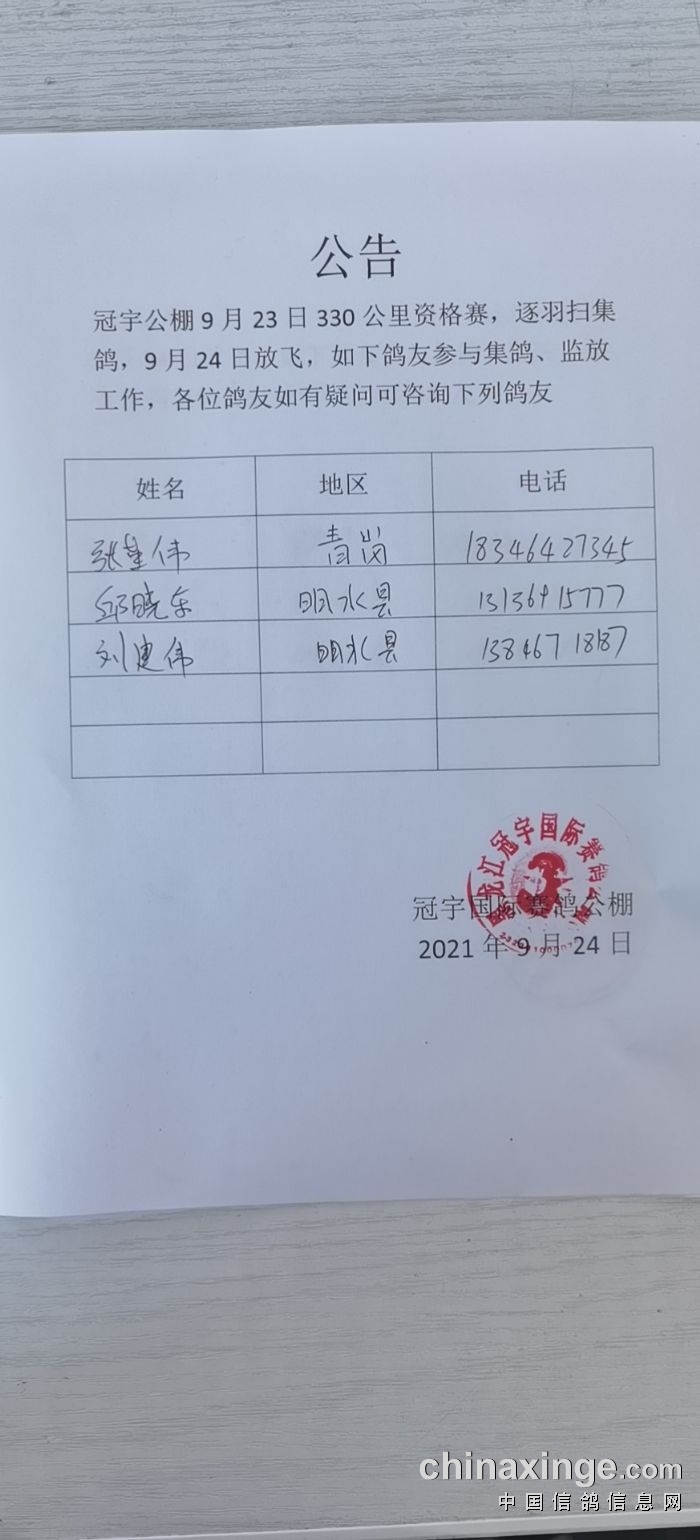 公告
冠宇公棚 9 月 23 日 330 公里资格赛，逐羽扫集
鸽，9 月 24 日放飞，如下鸽友参与集鸽、监放
工作，各位鸽友如有疑问可咨询下列鸽友
姓名 地区 电话
张奎伟 青岗 18346427345
邱晓东 明水县 13136915777
刘建伟 明水县 13846718187
龙江冠宇国际赛鸽
冠宇国际赛鸽公棚
2021 年 9 月 24 日
chinaxinge.com
中国信鸽信息网